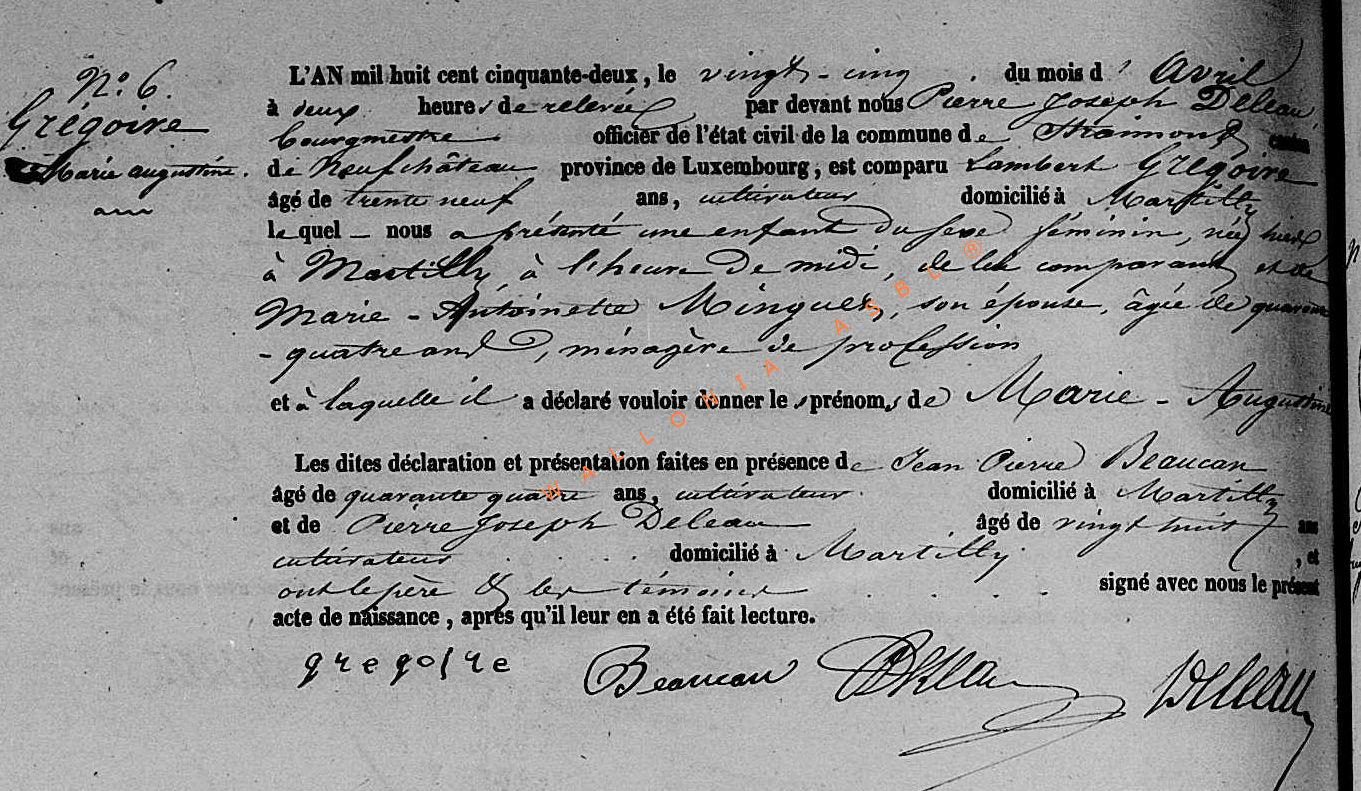 N° 6.
Grégoire
Marie augustine.
L'AN mil huit cent cinquante-deux, le vingt-cinq . du mois d' Avril
à deux heures de relevée par devant nous Pierre Joseph Deleau
bourgmestre officier de l'état civil de la commune de Straimont, canton
de Neufchâteau province de Luxembourg, est comparu Lambert Grégoire
âgé de trente neuf ans, cultivateur domicilié à Martilly
lequel — nous a présenté une enfant du sexe féminin, née hier
à Martilly, à l'heure de midi, de lui comparant et de
Marie-Antoinette Minguet, son épouse, âgée de quarante
-quatre ans, ménagère de profession
et à laquelle il a déclaré vouloir donner les prénoms de Marie-Augustine
Les dites déclaration et présentation faites en présence de Jean Pierre Beaucan
âgé de quarante quatre ans, cultivateur. domicilié à Martilly
et de Pierre Joseph Deleau âgé de vingt huit ans
cultivateur . . . domicilié à Martilly. , et
ont le père & les témoins . . . signé avec nous le présent
acte de naissance, après qu'il leur en a été fait lecture.
gregoire Beaucan Deleau Deleau
WALLONIA ASBL ®